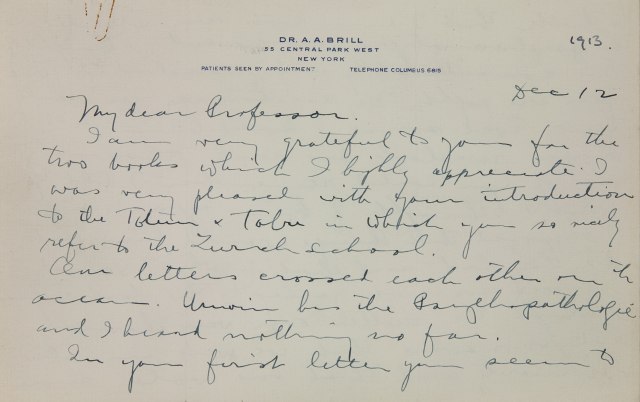 DR. A. A. BRILL
55 CENTRAL PARK WEST
NEW YORK
PATIENTS SEEN BY APPOINTMENT TELEPHONE COLUMBUS 6815
1913.
Dec 12
My dear Professor.
I am very grateful to you for the
two books which I highly appreciate. I
was very pleased with your introduction
to the Totem & Tabu in which you so nicely
refer to the Zurich school.
Our letters crossed each other on th
ocean. Unwin has the Psychopathologie
and I heard nothing so far.
In your first letter you seem to